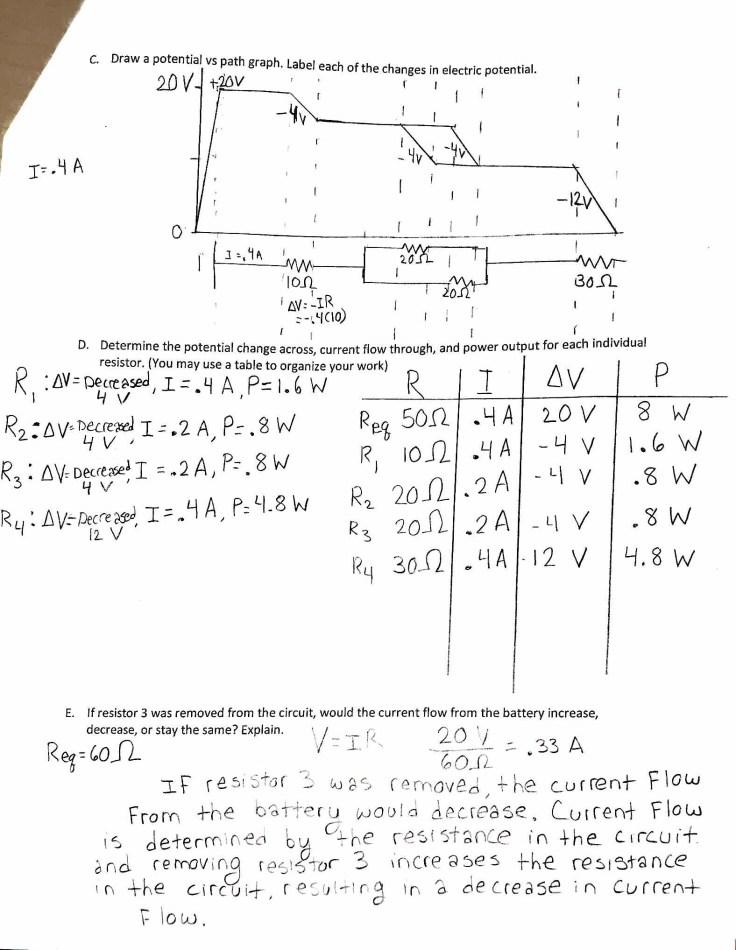 C. Draw a potential vs path graph. Label each of the changes in electric potential.
20V +20V
-4v
-4v -4v
I=.4 A
-12V
0
I=.4A
10Ω 20Ω 20Ω 30Ω
ΔV=-IR
=-.4(10)
D. Determine the potential change across, current flow through, and power output for each individual
resistor. (You may use a table to organize your work)
R1: ΔV=Decreased 4 V, I=.4 A, P=1.6 W
R2: ΔV=Decreased 4 V, I=.2 A, P=.8 W
R3: ΔV=Decreased 4 V, I=.2 A, P=.8 W
R4: ΔV=Decreased 12 V, I=.4 A, P=4.8 W
R I ΔV P
Req 50Ω .4A 20 V 8 W
R1 10Ω .4A -4 V 1.6 W
R2 20Ω .2A -4 V .8 W
R3 20Ω .2A -4 V .8 W
R4 30Ω .4A -12 V 4.8 W
E. If resistor 3 was removed from the circuit, would the current flow from the battery increase,
decrease, or stay the same? Explain.
Req=60Ω
V=IR
20 V / 60Ω = .33 A
IF resistor 3 was removed, the current Flow
From the battery would decrease. Current Flow
is determined by the resistance in the circuit
and removing resistor 3 increases the resistance
in the circuit, resulting in a decrease in current
Flow.